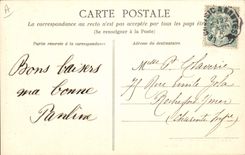 A
CARTE POSTALE
La correspondance au recto n'est pas acceptée par tous les pays étrangers
(Se renseigner à la Poste)
Partie réservée à la correspondance
Adresse du destinataire
Bons baisers
ma bonne
Pauline
Mme Vt Claverie
77 Rue Emile Zola
Rochefort s/mer
(Charente Infre)